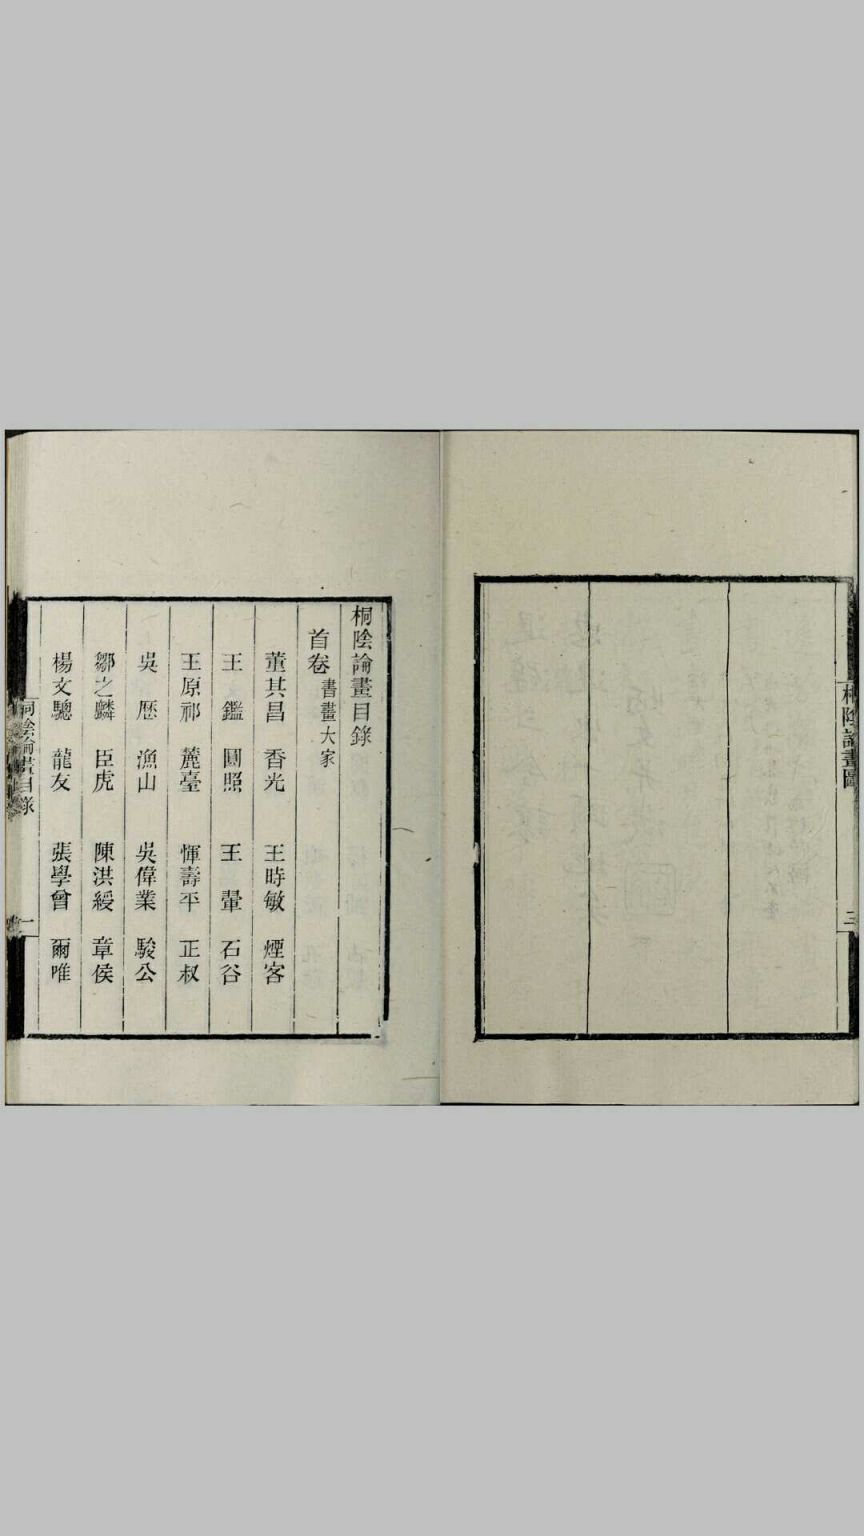 桐陰論畫圖
三
桐陰論畫目錄
首卷 書畫大家
董其昌 香光 王時敏 煙客
王鑑 圓照 王翬 石谷
王原祁 麓臺 惲壽平 正叔
吳歷 漁山 吳偉業 駿公
鄒之麟 臣虎 陳洪綬 章侯
楊文驄 龍友 張學曾 爾唯
桐陰論畫目錄
一